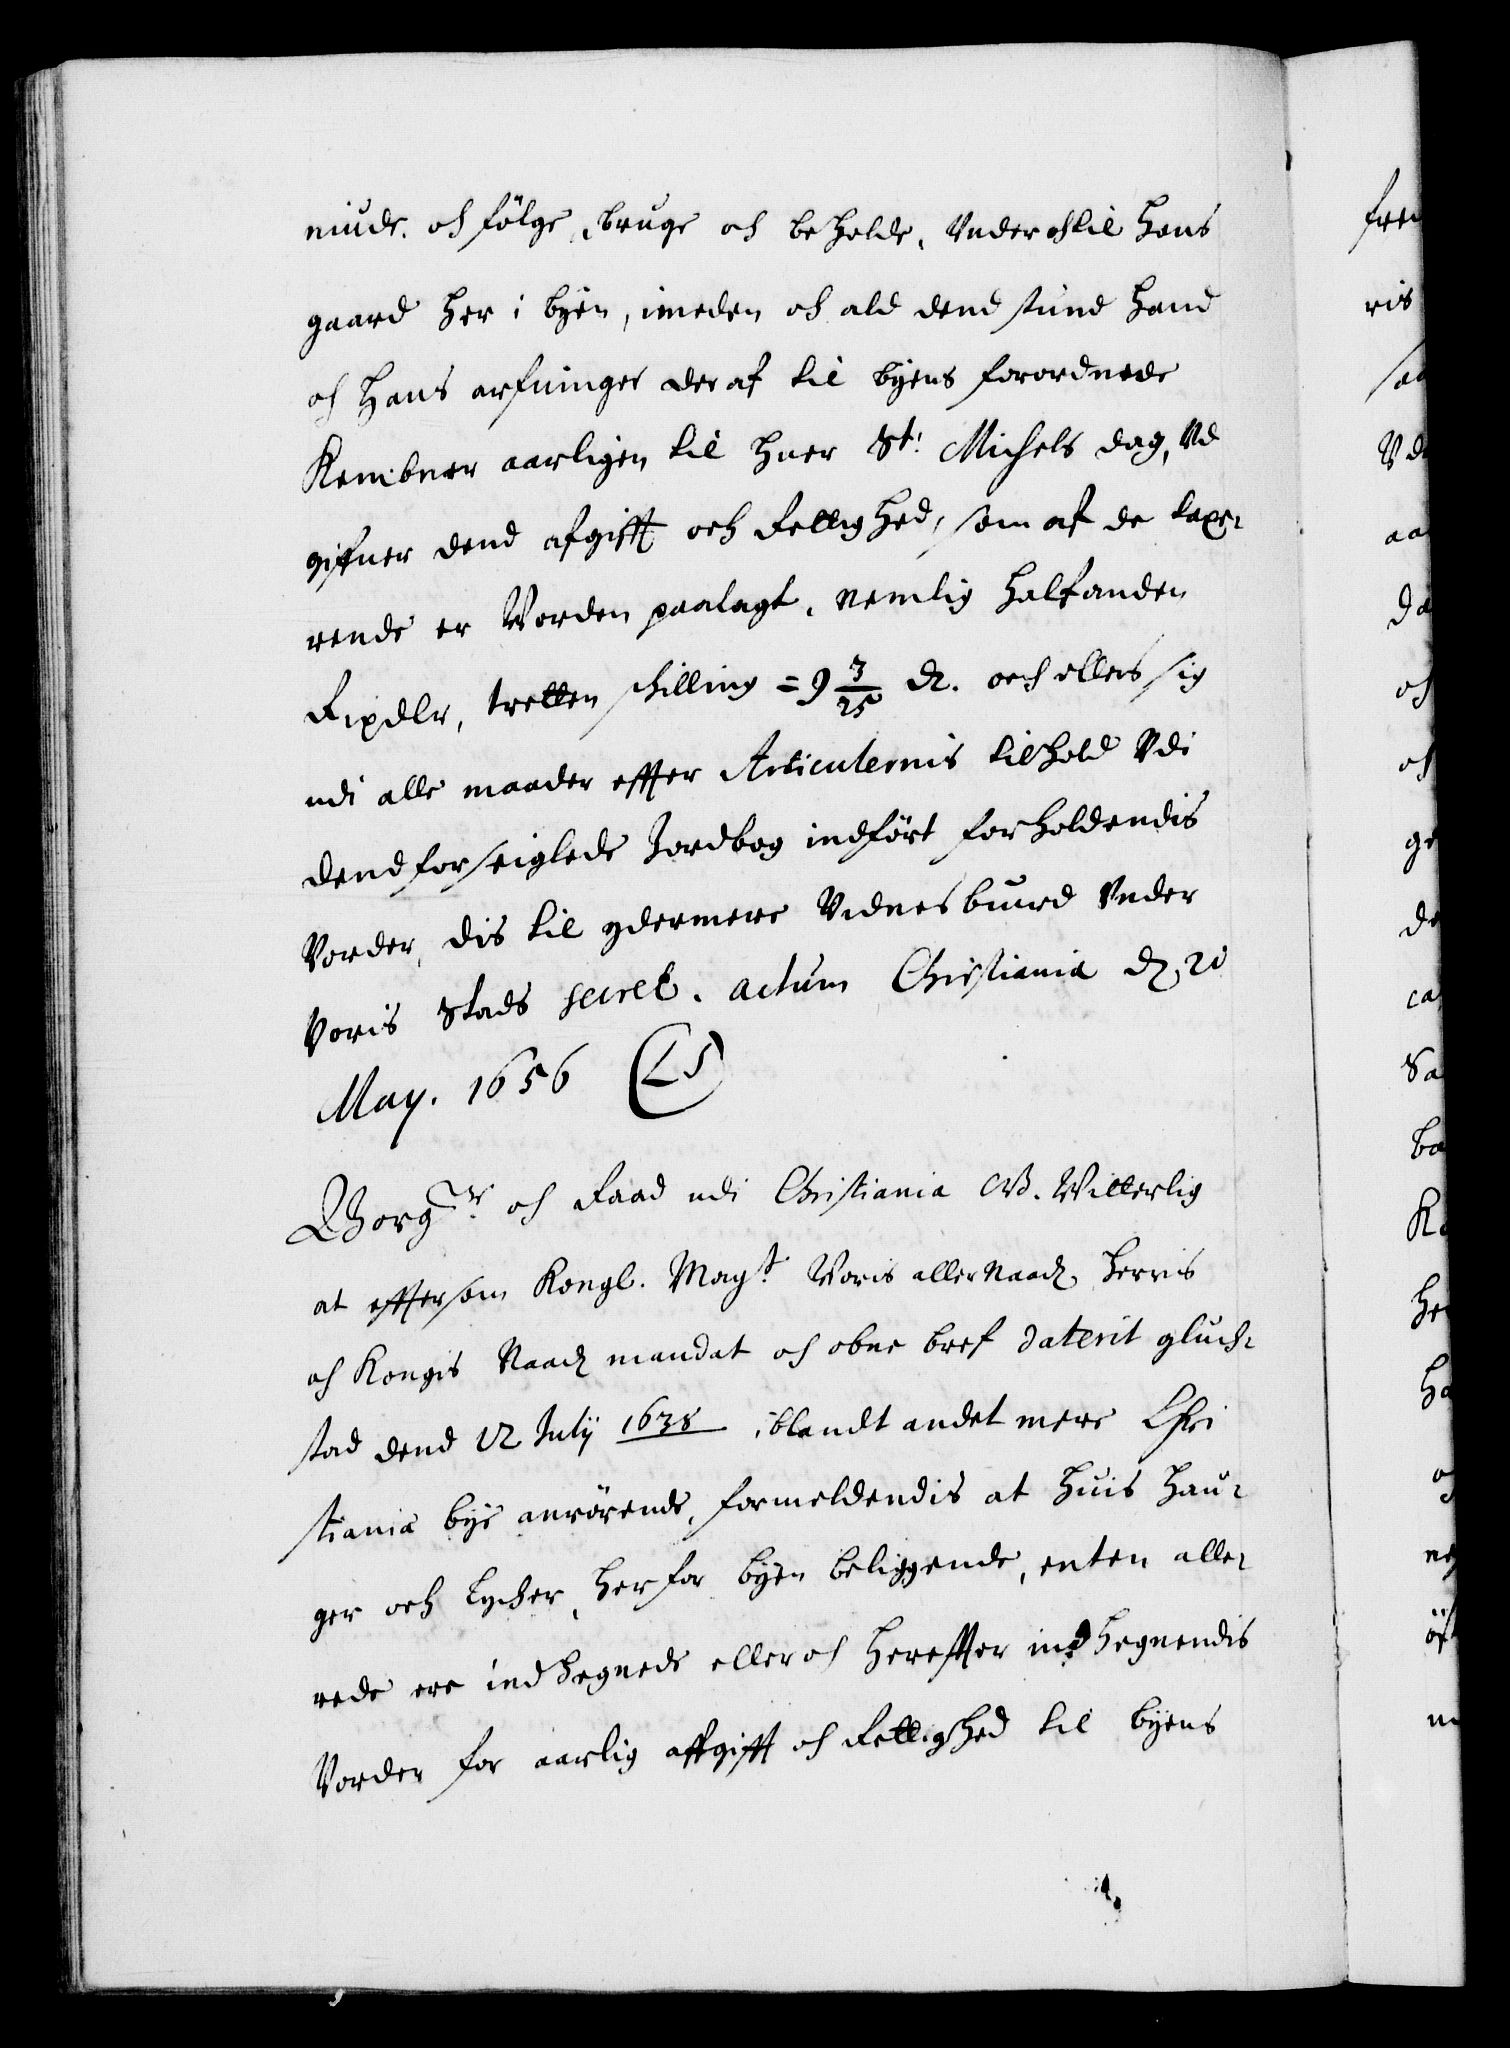 niude. och fölge, bruge och beholde, Vnder och til hans
gaard her i byen, imeden och ald dend stund hand
och hans arfuinger der af til byens forordnede
Kembner aarligen til huer St: Michels dag, Vd
gifuer dend afgifft och Rettighed, som af de taxe-
rende er Worden paalagt, Nemlig halfanden
Rixdlr, tretten skilling = 9 3/25 d. och ellers sig
udi alle maader effter Articulernis tilhold Vdi
dend forseiglede Jordbog indfört forholdendis
Vorder, dis til ydermere Vidnesbuurd Vnder
Voris Stads secret. actum Christiania d. 21
May. 1656 (LS)
Borgr. och Raad udi Christiania GW. Witterlig
at effter som Kongl. Mayt. Woris aller Naad. herris
och Kongis Naad mandat och obne bref daterit gluch-
stad dend 12 July 1638 iblandt andet mere Chri
stiania bye anrörende, formeldendis at huis hau-
ger och Lycher, her for byen beliggende, enten alle-
rede ere indhegnede eller och hereffter indhegnendis
Vorder for aarlig affgifft och Rettighed til byens